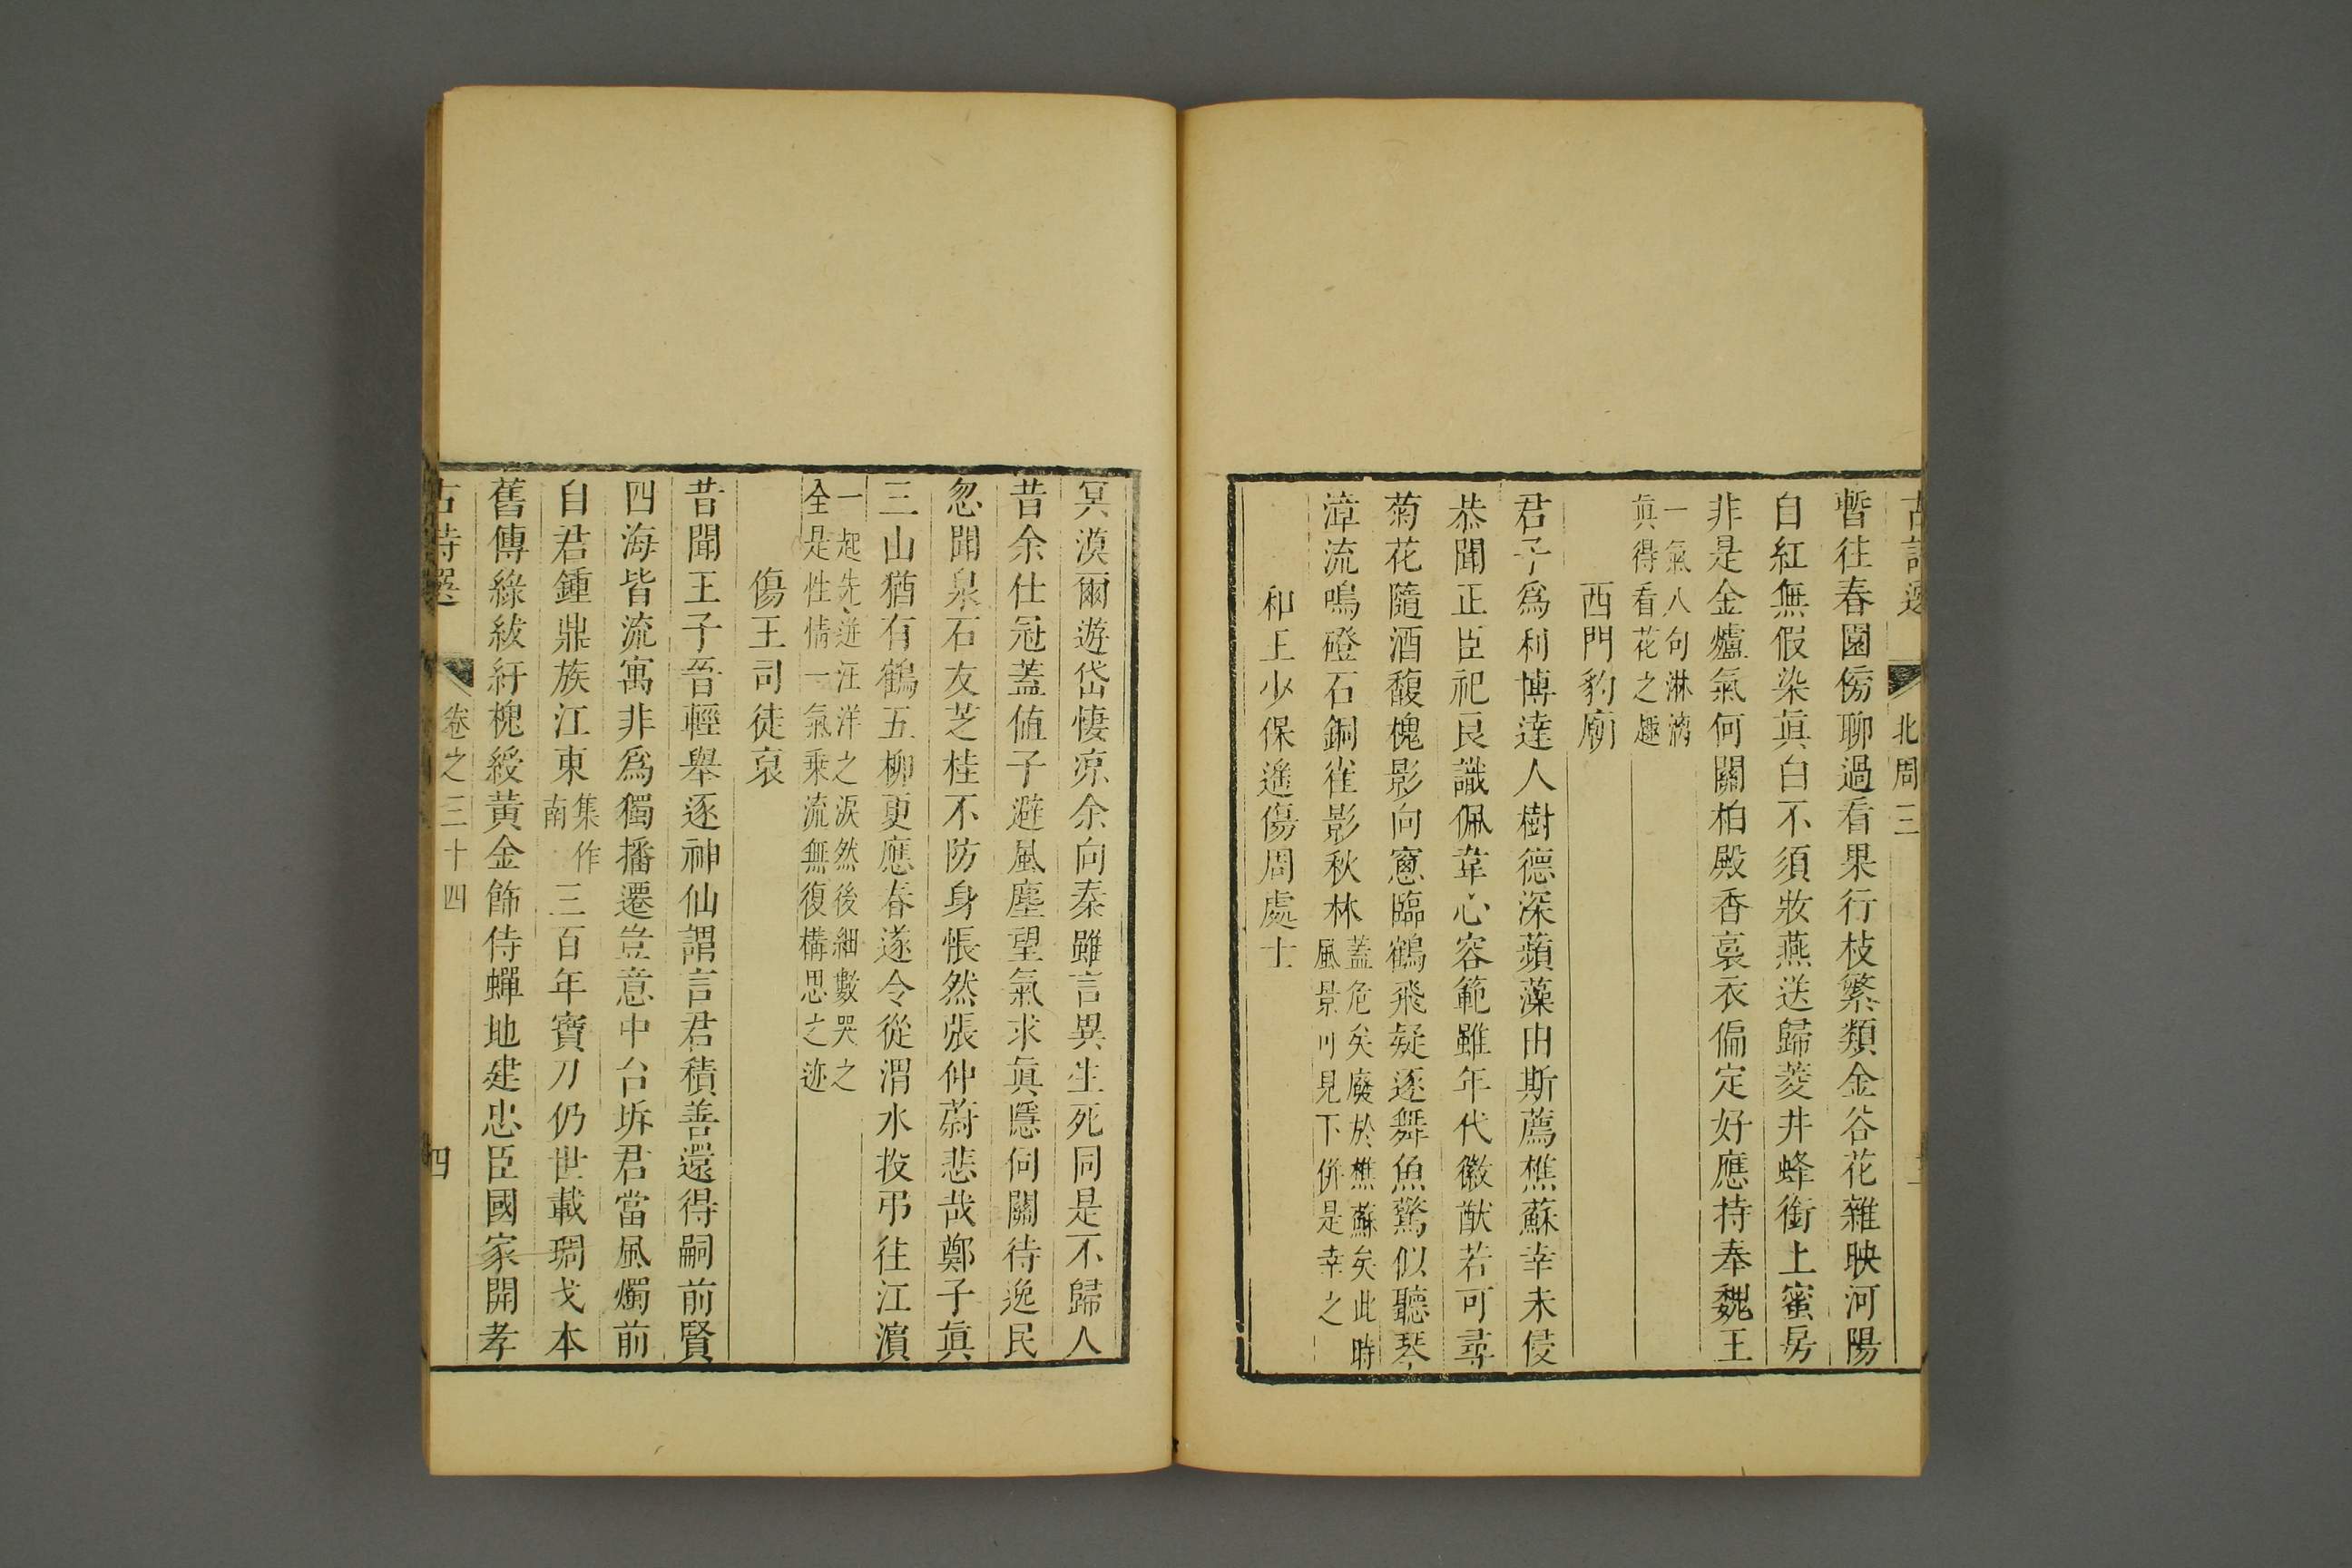 古詩選 北周三
暫往春園傍聊過看果行枝繁類金谷花雜映河陽
自紅無假染眞白不須妝燕送歸菱井蜂銜上蜜房
非是金爐氣何關柏殿香裛衣偏定好應持奉魏王
一氣八句淋漓
眞得看花之趣
西門豹廟
君子爲利博達人樹德深蘋藻由斯薦樵蘇幸未侵
恭聞正臣祀良識佩韋心容範雖年代徽猷若可尋
菊花隨酒馥槐影向窻臨鶴飛疑逐舞魚驚似聽琴
漳流鳴磴石銅雀影秋林
蓋危矣廢於樵蘇矣此時
風景川見下倂是幸之
和王少保遙傷周處士
冥漠爾遊岱悽涼余向秦雖言異生死同是不歸人
昔余仕冠蓋値子避風塵望氣求眞隱伺關待逸民
忽聞泉石友芝桂不防身悵然張仲蔚悲哉鄭子眞
三山猶有鶴五柳更應春遂令從渭水投弔往江濵
一起先迸汪洋之淚然後細數哭之
全是性情一氣乘流無復構思之迹
傷王司徒裒
昔聞王子晉輕舉逐神仙謂言君積善還得嗣前賢
四海皆流寓非爲獨播遷豈意中台坼君當風燭前
自君鍾鼎族江東
集作
南
三百年寶刀仍世載琱戈本
舊傳綠紱紆槐綬黃金飾侍蟬地建忠臣國家開孝
古詩選 卷之三十四 四